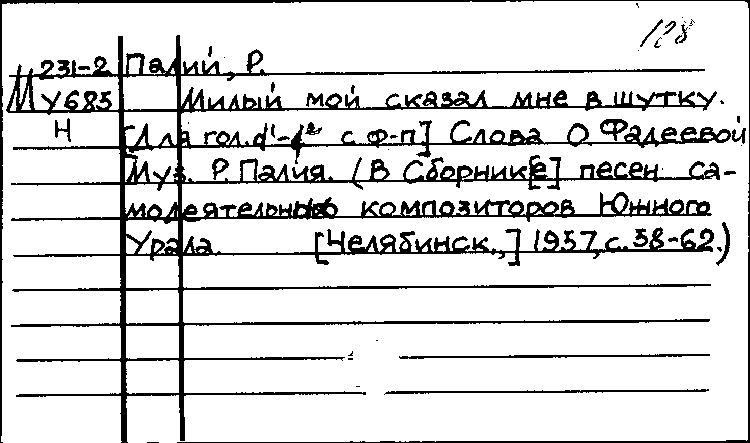 128
231-2 Палий, Р.
М У685 Милый мой сказал мне в шутку.
Н [Для гол. d¹-f² с ф-п] Слова О. Фадеевой
Муз. Р. Палия. (В Сборник[е] песен са-
модеятельных композиторов Южного
Урала. [Челябинск.,] 1957, с. 58-62.)